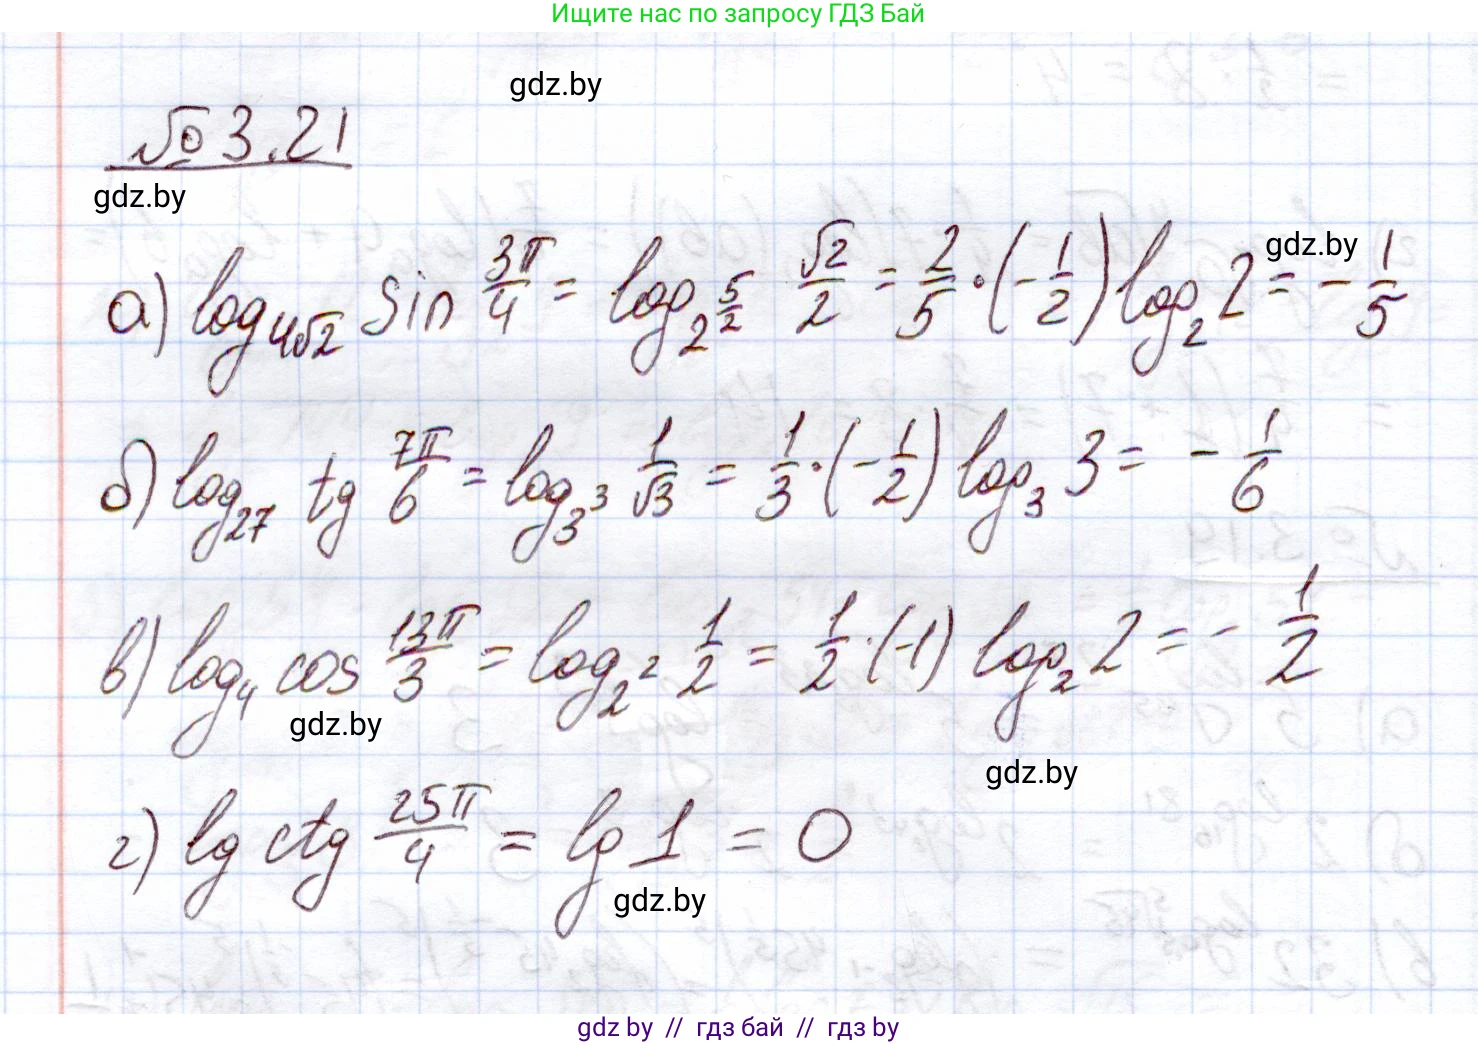 Ищите нас по запросу ГДЗ Бай
gdz.by
№ 3.21
gdz.by
gdz.by
а) log_{4√2} sin 3π/4 = log_{2^{5/2}} √2/2 = 2/5 · (-1/2) log_2 2 = - 1/5
б) log_{27} tg 7π/6 = log_{3^3} 1/√3 = 1/3 · (-1/2) log_3 3 = - 1/6
в) log_4 cos 13π/3 = log_{2^2} 1/2 = 1/2 · (-1) log_2 2 = - 1/2
gdz.by
gdz.by
г) lg ctg 25π/4 = lg 1 = 0
gdz.by
gdz by // гдз бай // гдз by